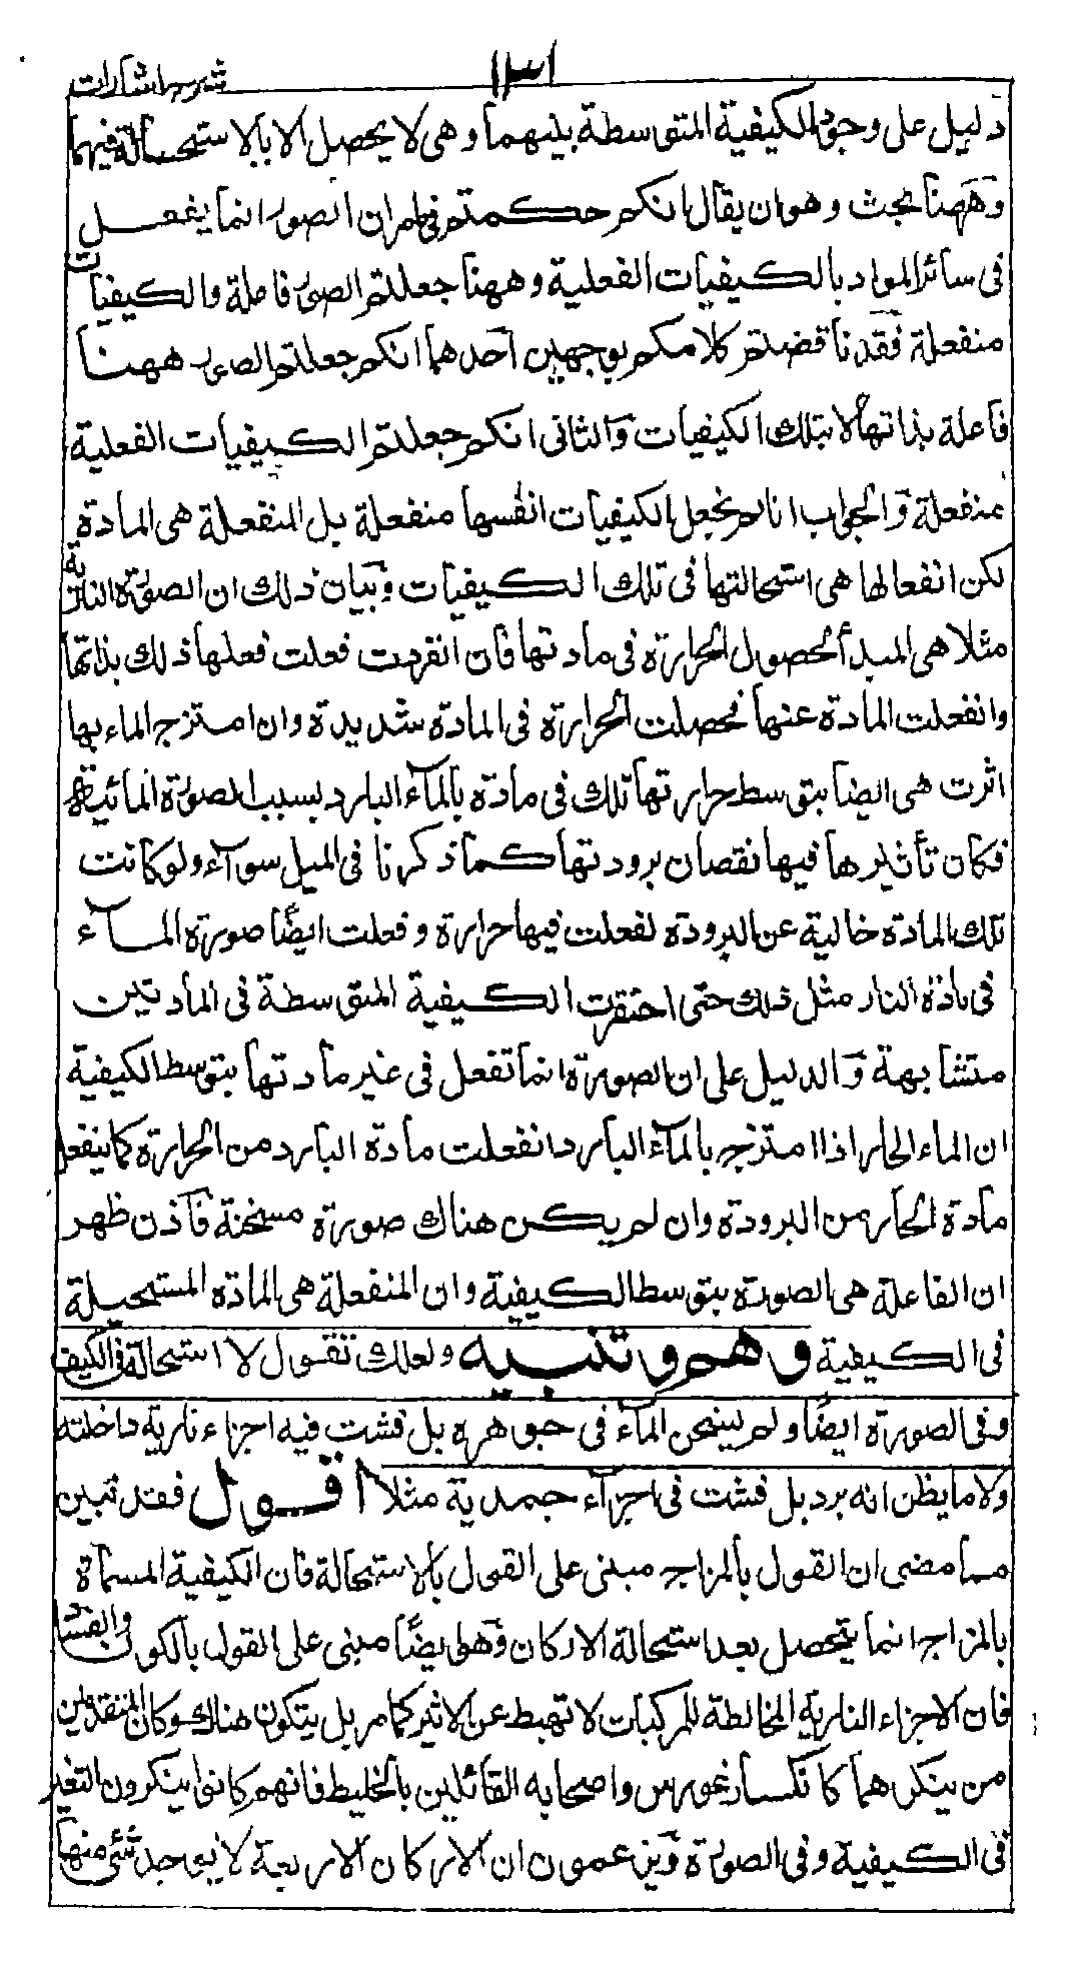 شرح اشارات
١٣١
دليل على وجود الكيفية المتوسطة بينهما وهى لا يحصل الا بالاستحالة فيهما
وههنا بحث وهو ان يقال انكم حكمتم فى ما مر ان الصور انما يفعل
فى سائر المواد بالكيفيات الفعلية وههنا جعلتم الصور فاعلة والكيفيات
منفعلة فقد ناقضتم كلامكم بوجهين احدهما انكم جعلتم الصور ههنا
فاعلة بذاتها لا بتلك الكيفيات والثانى انكم جعلتم الكيفيات الفعلية
منفعلة والجواب انا لم نجعل الكيفيات انفسها منفعلة بل المنفعلة هى المادة
لكن انفعالها هى استحالتها فى تلك الكيفيات وبيان ذلك ان الصورة النارية
مثلا هى المبدأ لحصول الحرارة فى مادتها فان انفردت فعلت فعلها ذلك بذاتها
وانفعلت المادة عنها فحصلت الحرارة فى المادة شديدة وان امتزج الماء بها
اثرت هى ايضا بتوسط حرارتها تلك فى مادة بالمآء البارد بسبب الصورة المائية
فكان تأثيرها فيها نقصان برودتها كما ذكرنا فى الميل سوآء ولو كانت
تلك المادة خالية عن البرودة لفعلت فيها حرارة وفعلت ايضًا صورة المآء
فى مادة النار مثل ذلك حتى استقرت الكيفية المتوسطة فى المادتين
متشابهة والدليل على ان الصورة انما تفعل فى غير مادتها بتوسط الكيفية
ان الماء الحار اذا امتزج بالمآء البارد انفعلت مادة البارد من الحرارة كما ينفعل
مادة الحار من البرودة وان لم يكن هناك صورة مسخنة فاذن ظهر
ان الفاعلة هى الصورة بتوسط الكيفية وان المنفعلة هى المادة المستحيلة
فى الكيفية وهم وتنبيه ولعلك تقول لا استحالة فى الكيف
وفى الصورة ايضًا ولم يسخن المآء فى جوهره بل فشت فيه اجزاء نارية داخلته
ولا ما يظن انه برد بل فشت فى اجزآء جمدية مثلا اقول فقد تبين
مما مضى ان القول بالمزاج مبنى على القول بالاستحالة فان الكيفية المسماة
بالمزاج انما يتحصل بعد استحالة الاركان وهو ايضًا مبنى على القول بالكون والفساد
فان الاجزاء النارية المخالطة للمركبات لا تهبط عن الاثير كما مر بل يتكون هناك وكان المتقدمين
من ينكرهما كانكساغورس واصحابه القائلين بالخليط فانهم كانوا ينكرون التغير
فى الكيفية وفى الصورة ويزعمون ان الاركان الاربعة لا يوجد شئ منها